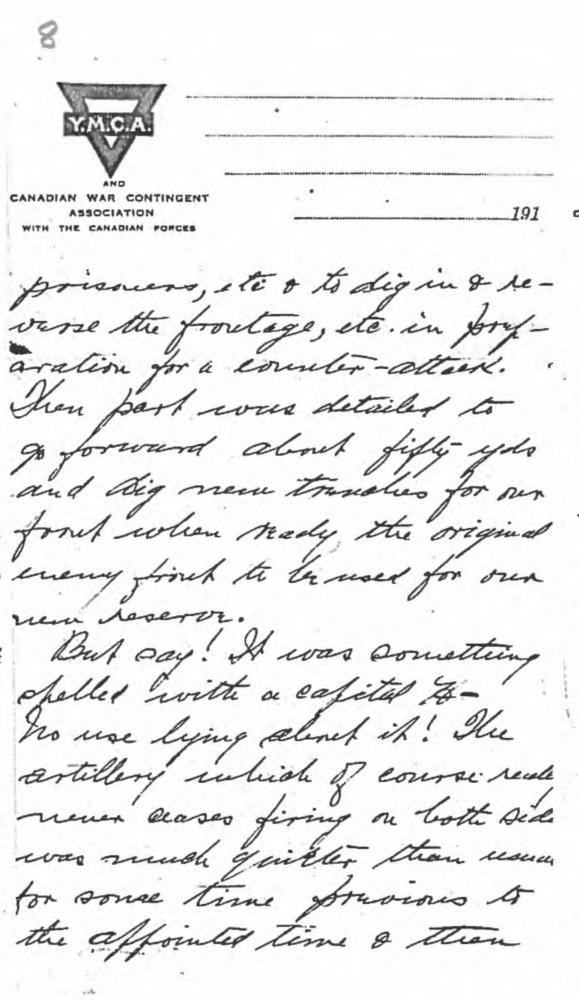 8
Y.M.C.A.
AND
CANADIAN WAR CONTINGENT
ASSOCIATION
WITH THE CANADIAN FORCES
191
prisoners, etc & to dig in & re-
verse the frontage, etc. in prep-
aration for a counter-attack.
Then part was detailed to
go forward about fifty yds
and dig new trenches for our
front when ready the original
enemy front to be used for our
new reserve.
But say! It was something
spelled with a capital H-
No use lying about it! The
artillery which of course
never ceases firing on both side
was much quieter than usual
for some time previous to
the appointed time & then